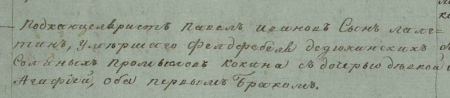 Подканцеляристъ Павелъ Ивановъ Сынъ
умершаго Фелдфебеля Дедюхинскихъ
Соляныхъ Промысловъ Кокина съ дочерью девкой
Агафией, оба первымъ Бракомъ.